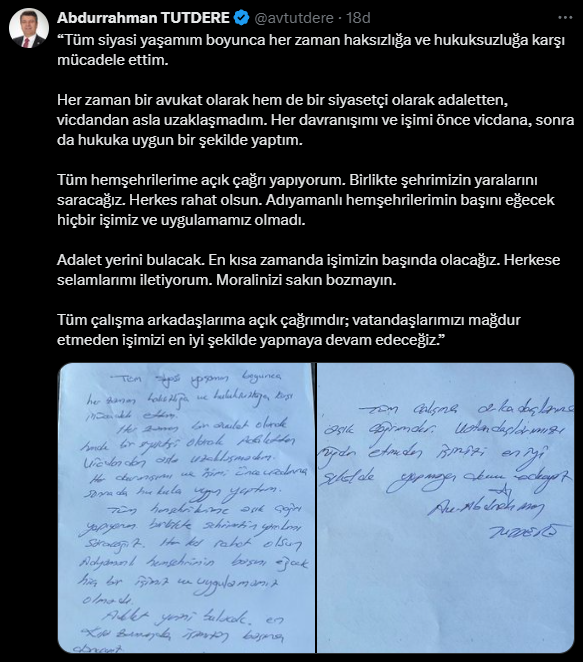 Abdurrahman TUTDERE @avtutdere · 18d
“Tüm siyasi yaşamım boyunca her zaman haksızlığa ve hukuksuzluğa karşı
mücadele ettim.
Her zaman bir avukat olarak hem de bir siyasetçi olarak adaletten,
vicdandan asla uzaklaşmadım. Her davranışımı ve işimi önce vicdana, sonra
da hukuka uygun bir şekilde yaptım.
Tüm hemşehrilerime açık çağrı yapıyorum. Birlikte şehrimizin yaralarını
saracağız. Herkes rahat olsun. Adıyamanlı hemşehrilerimin başını eğecek
hiçbir işimiz ve uygulamamız olmadı.
Adalet yerini bulacak. En kısa zamanda işimizin başında olacağız. Herkese
selamlarımı iletiyorum. Moralinizi sakın bozmayın.
Tüm çalışma arkadaşlarıma açık çağrımdır; vatandaşlarımızı mağdur
etmeden işimizi en iyi şekilde yapmaya devam edeceğiz.”
Tüm siyasi yaşamım boyunca
her zaman haksızlığa ve hukuksuzluğa karşı
mücadele ettim.
Her zaman bir avukat olarak
hemde bir siyasetçi olarak Adaletten
Vicdandan asla uzaklaşmadım.
Her davranışımı ve işimi önce vicdana
sonrada hukuka uygun yaptım.
Tüm hemşehrilerime açık çağrı
yapıyorum birlikte şehrimizin
saracağız. Her kes rahat olsun
Adıyamanlı hemşehrimin başını eğecek
hiç bir işimiz ve uygulamamız
olmadı.
Adalet yerini bulacak. en
kısa zamanda işimizin başında
Tüm çalışma arkadaşlarıma
açık çağrımdır. Vatandaşlarımızı
mağdur etmeden işimizi en iyi
şekilde yapmaya devam
Av. Abdurrahman
TUTDERE